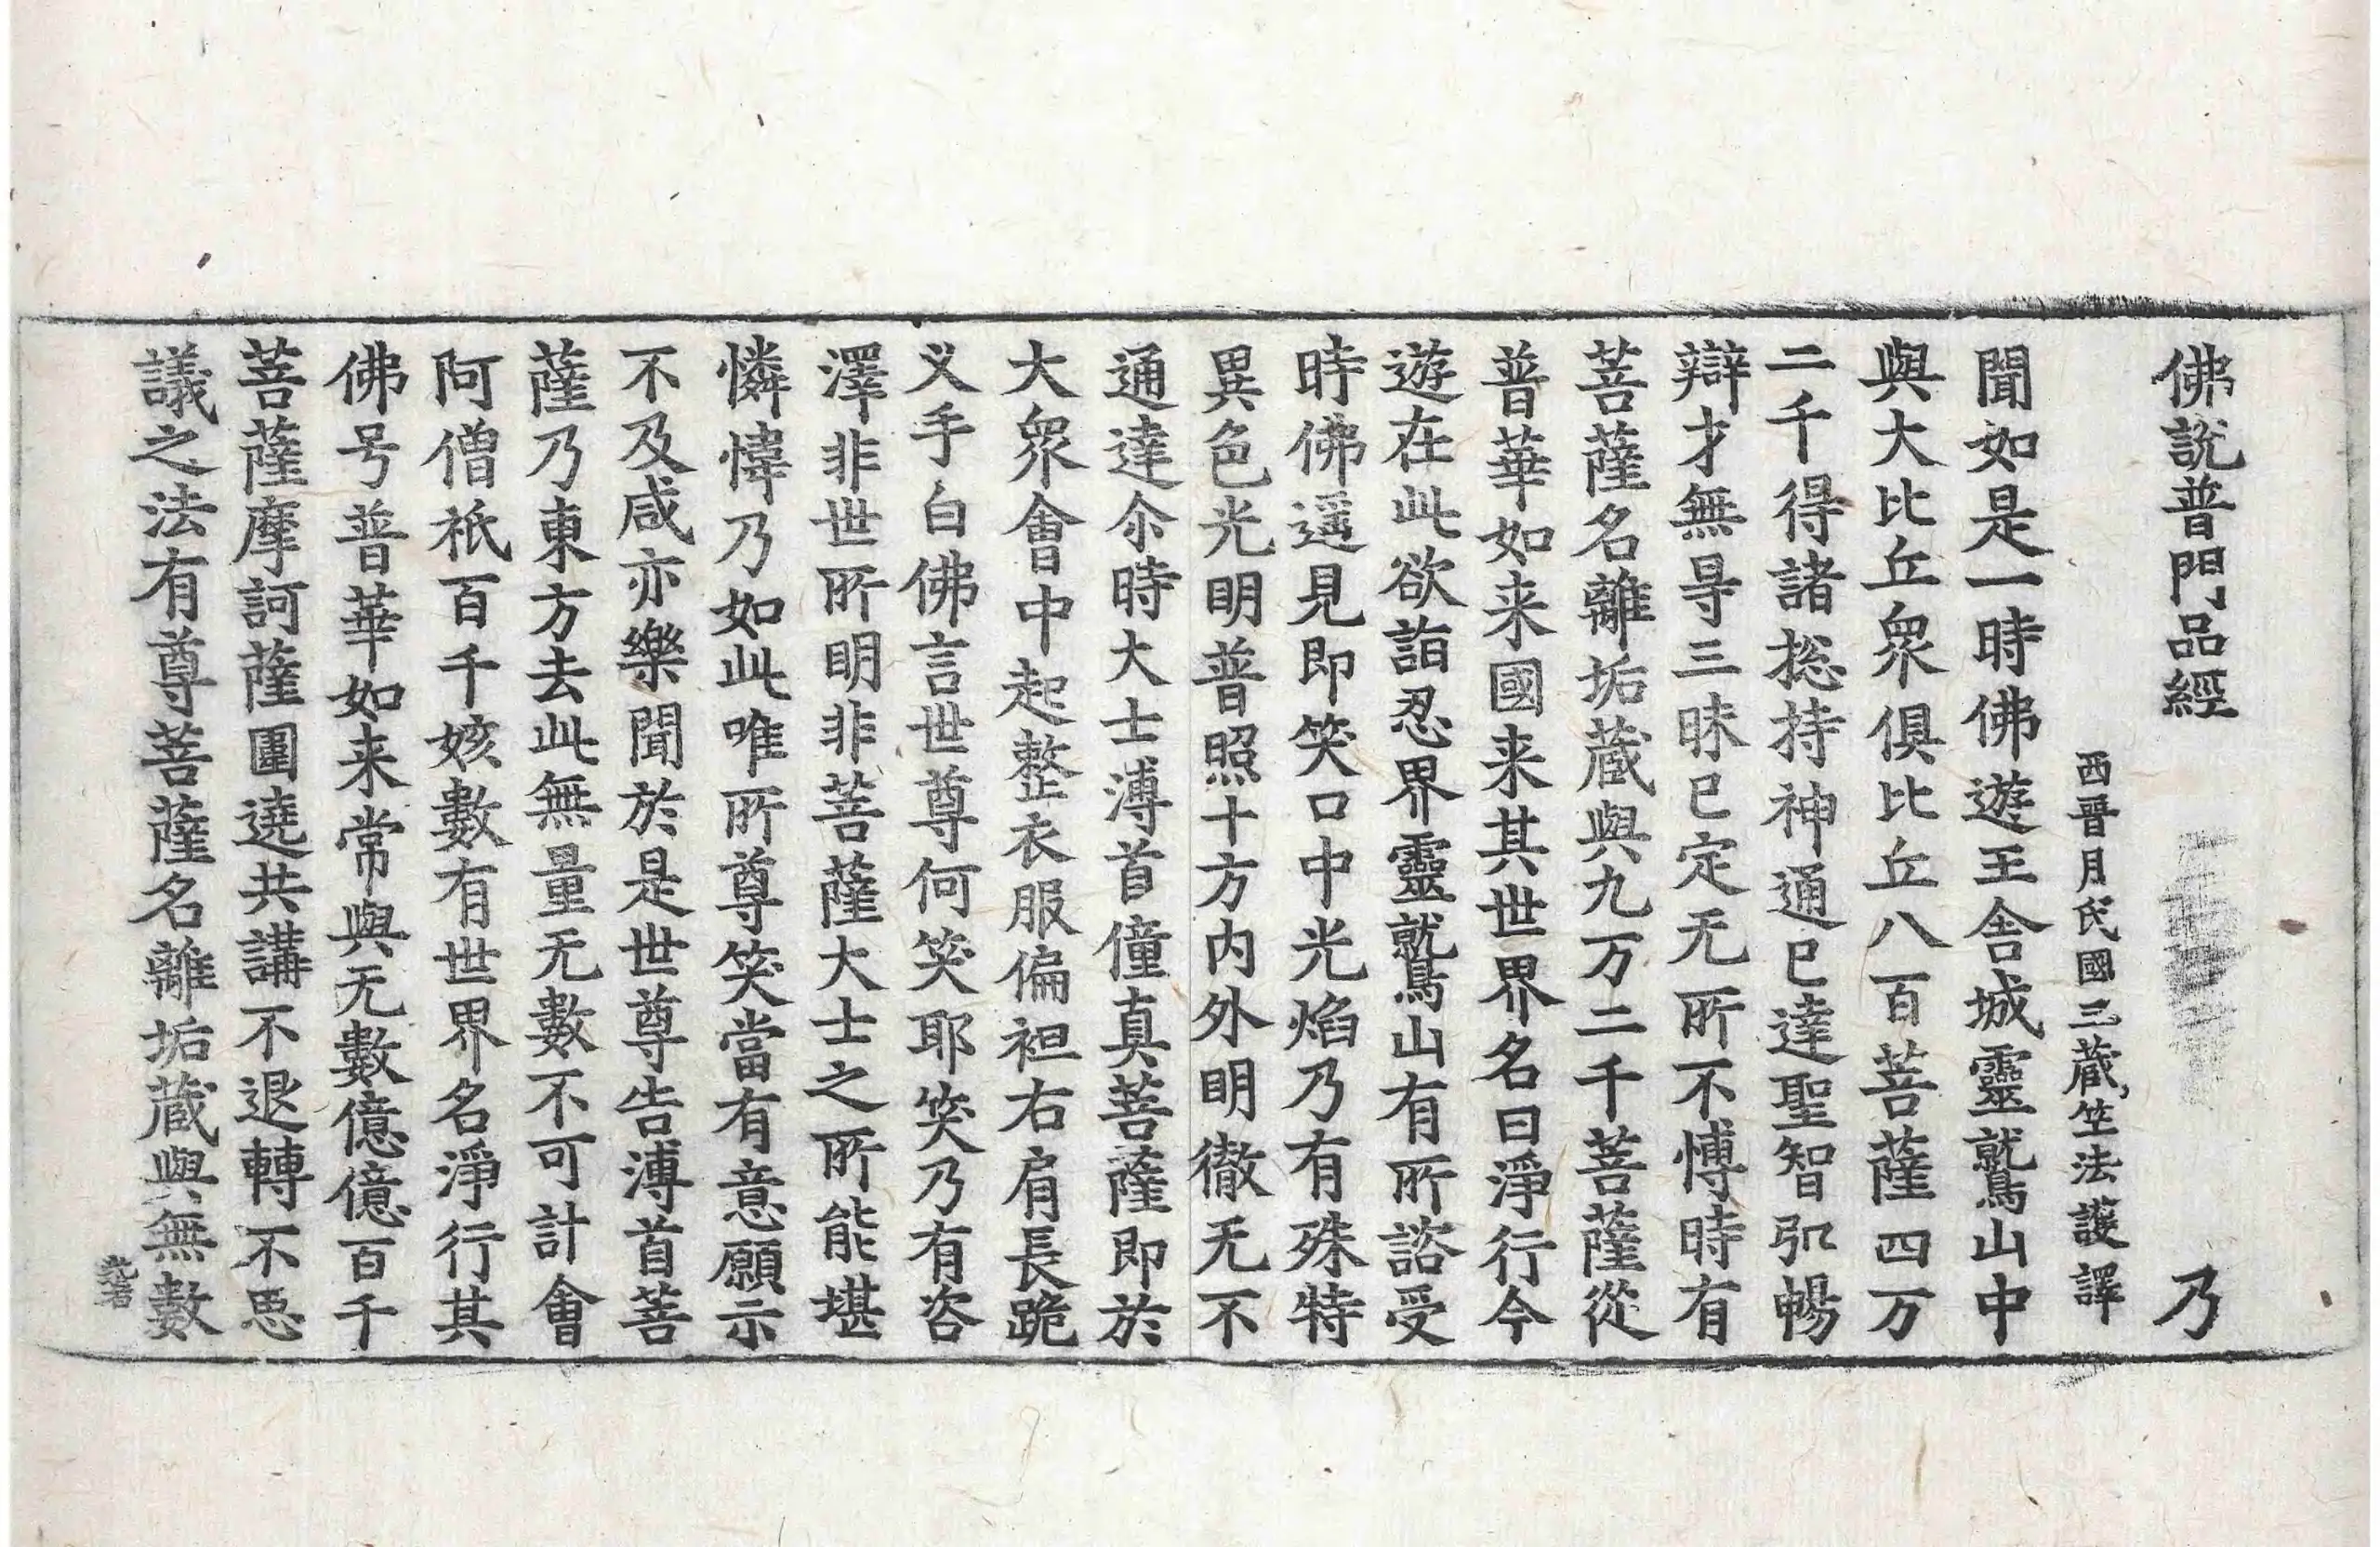 佛說普門品經 乃
西晋月氏國三蔵竺法護譯
聞如是一時佛遊王舎城靈鷲山中
與大比丘衆俱比丘八百菩薩四万
二千得諸揔持神通已達聖智弘暢
辯才無㝵三昧已定无所不愽時有
菩薩名離垢蔵與九万二千菩薩從
普華如来國来其世界名曰淨行今
遊在此欲詣忍界靈鷲山有所諮受
時佛遥見即笑口中光焰乃有殊特
異色光明普照十方内外明徹无不
通達尒時大士溥首僮真菩薩即於
大衆會中起整衣服偏袒右肩長跪
义手白佛言世尊何笑耶笑乃有咨
澤非世所明非菩薩大士之所能堪
憐愇乃如此唯所尊笑當有意願示
不及咸亦樂聞於是世尊告溥首菩
薩乃東方去此無量无數不可計會
阿僧祇百千姟數有世界名淨行其
佛号普華如来常與无數億億百千
菩薩摩訶薩圍遶共講不退轉不思
議之法有尊菩薩名離垢蔵與無數